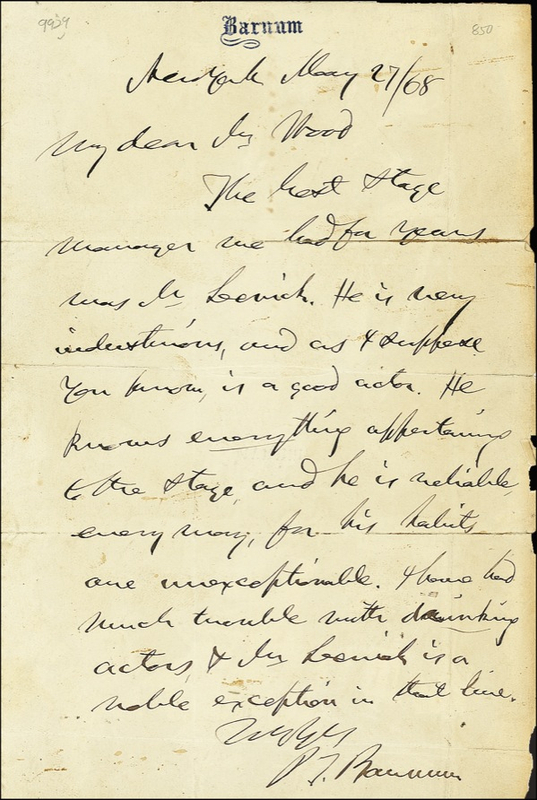 9929
850
Barnum
New York May 27/68
My dear Mr Wood
The best stage
manager we had for years
was Mr Levick. He is very
industrious, and as I suppose
you know, is a good actor. He
knows everything appertaining
to the stage, and he is reliable
every way, for his habits
are unexceptionable. I have had
much trouble with drinking
actors, & Mr Levick is a
noble exception in that line.
P. T. Barnum